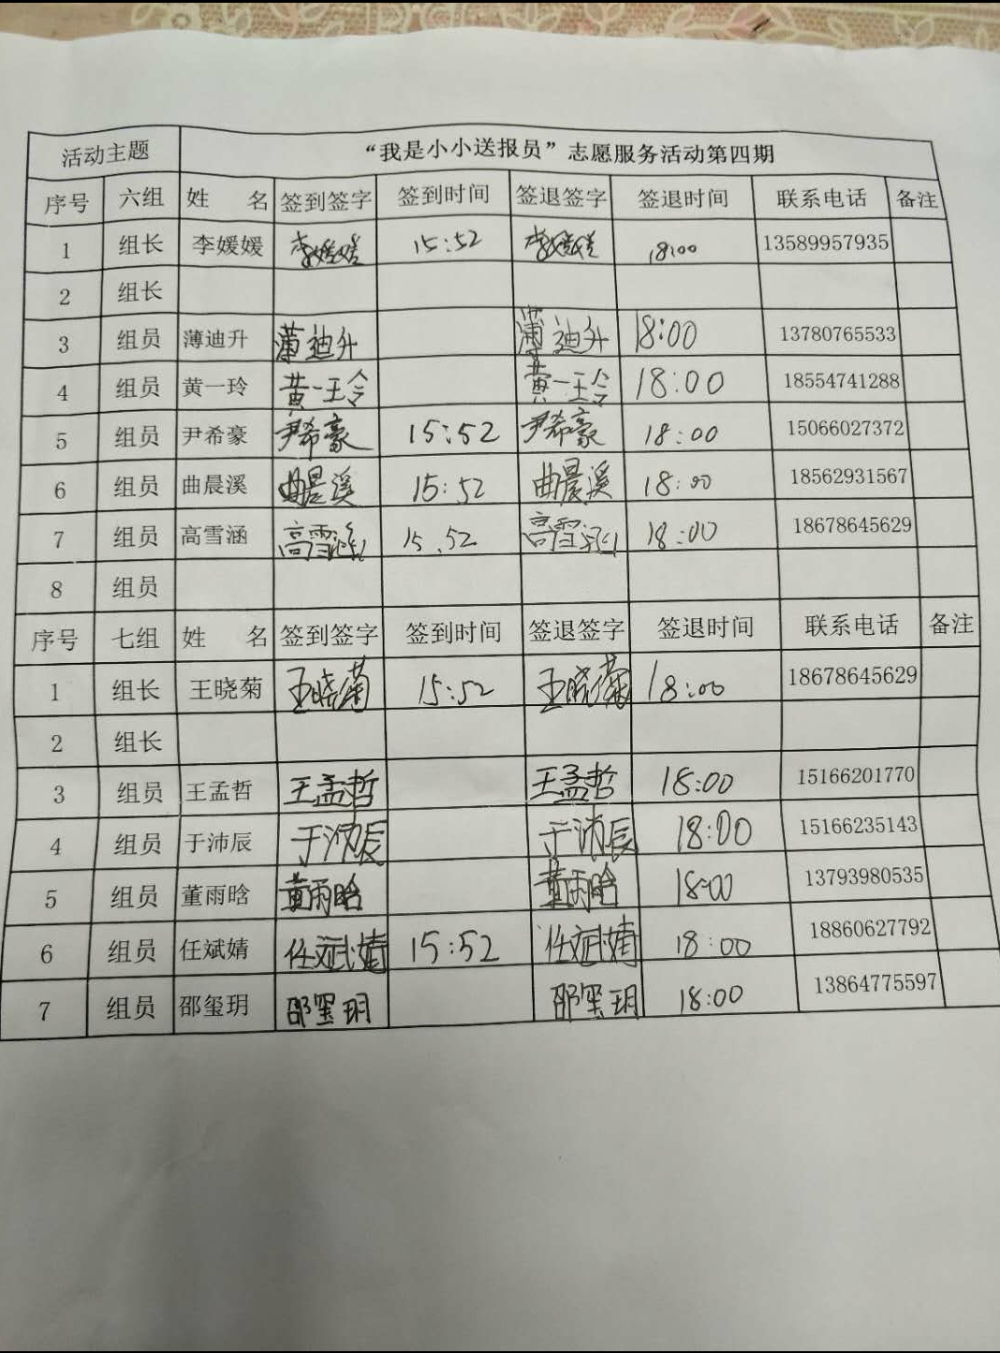 活动主题 “我是小小送报员”志愿服务活动第四期
序号 六组 姓 名 签到签字 签到时间 签退签字 签退时间 联系电话 备注
1 组长 李媛媛 李媛媛 15:52 李媛媛 18:00 13589957935
2 组长
3 组员 薄迪升 薄迪升 薄迪升 18:00 13780765533
4 组员 黄一玲 黄一玲 黄一玲 18:00 18554741288
5 组员 尹希豪 尹希豪 15:52 尹希豪 18:00 15066027372
6 组员 曲晨溪 曲晨溪 15:52 曲晨溪 18:00 18562931567
7 组员 高雪涵 高雪涵 15.52 高雪涵 18:00 18678645629
8 组员
序号 七组 姓 名 签到签字 签到时间 签退签字 签退时间 联系电话 备注
1 组长 王晓菊 王晓菊 15:52 王晓菊 18:00 18678645629
2 组长
3 组员 王孟哲 王孟哲 王孟哲 18:00 15166201770
4 组员 于沛辰 于沛辰 于沛辰 18:00 15166235143
5 组员 董雨晗 董雨晗 董雨晗 18:00 13793980535
6 组员 任斌婧 任斌婧 15:52 任斌婧 18:00 18860627792
7 组员 邵玺玥 邵玺玥 邵玺玥 18:00 13864775597